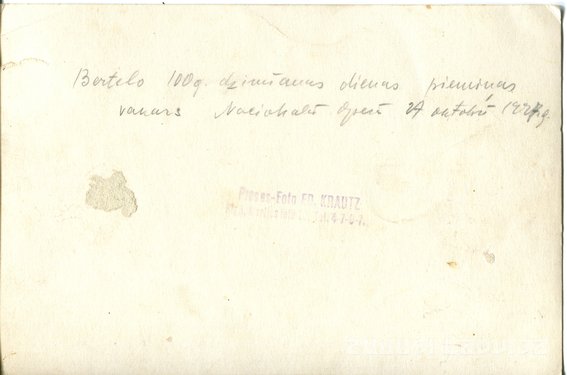 Bertelo 100g. dzimšanas dienas piemiņas
vakars Nacionālā Operā 27 oktobrī 1927g.
Presse-Foto ED. KRAUTZ
Tel. 4-7-9-7.